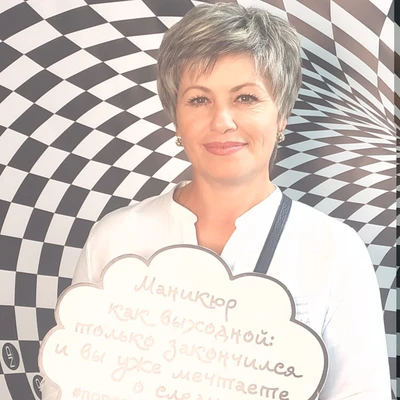 Маникюр
как выходной:
только закончился
и вы уже мечтаете